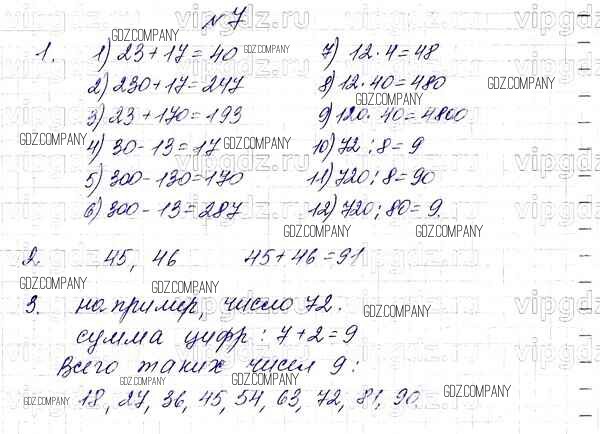 № 7
1. 1) 23 + 17 = 40
2) 230 + 17 = 247
3) 23 + 170 = 193
4) 30 - 13 = 17
5) 300 - 130 = 170
6) 300 - 13 = 287
7) 12 · 4 = 48
8) 12 · 40 = 480
9) 120 · 40 = 4800
10) 72 : 8 = 9
11) 720 : 8 = 90
12) 720 : 80 = 9.
2. 45, 46 45 + 46 = 91
3. например, число 72.
сумма цифр : 7 + 2 = 9
Всего таких чисел 9 :
18, 27, 36, 45, 54, 63, 72, 81, 90
vipgdz.ru
GDZ.COMPANY